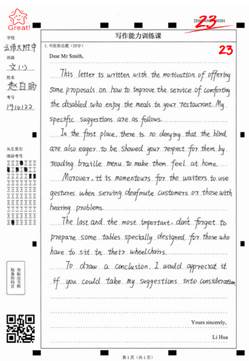 Great!
23
写作能力训练课
23
学校
姓名
考号
1910122
Dear Mr Smith,
This letter is written with the motivation of offering
some proposals on how to improve the service of comforting
the disabled who enjoy the meals in your restaurant. My
specific suggestions are as follows.
In the first place, there is no denying that the blind
are also eager to be showed your respect for them by
reading braille menu to make them feel at home.
Morover, it is momentours for the waiters to use
gestures when serving deafmute customers or those with
hearing problems.
The last and the most important, don't forget to
prepare some tables specially designed for those who
have to sit in their wheelchairs.
To draw a conclusion, I would appreciat it
if you could take my suggestions into consideration
Yours sincerely,
Li Hua
第1页(共1页)